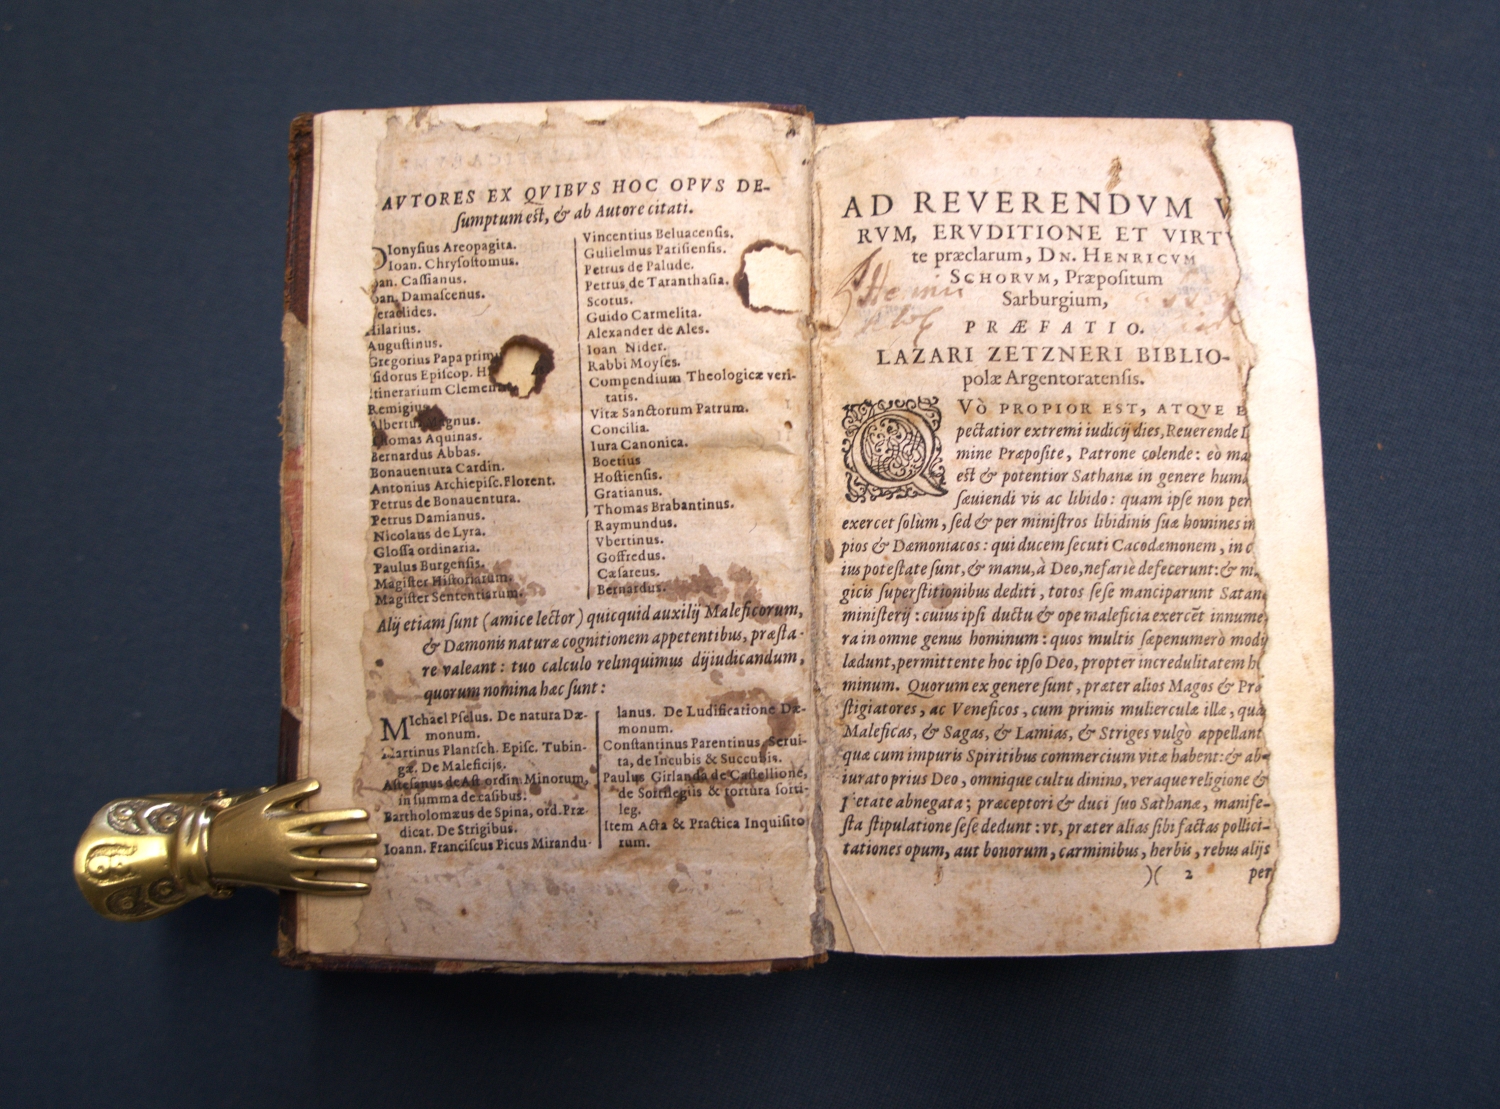 AVTORES EX QVIBVS HOC OPVS DE-
ſumptum eſt, & ab Autore citati.
DIonyſius Areopagita.
Ioan. Chryſoſtomus.
oan. Caſſianus.
oan. Damaſcenus.
eraclides.
Hilarius.
Auguſtinus.
Gregorius Papa primu
Iſidorus Epiſcop. Hi
Itinerarium Clemen
Remigius
Albertus Magnus.
Thomas Aquinas.
Bernardus Abbas.
Bonauentura Cardin.
Antonius Archiepiſc. Florent.
Petrus de Bonauentura.
Petrus Damianus.
Nicolaus de Lyra.
Gloſſa ordinaria.
Paulus Burgenſis.
Magiſter Hiſtoriarum.
Magiſter Sententiarum.
Vincentius Beluacenſis.
Gulielmus Pariſienſis.
Petrus de Palude.
Petrus de Taranthaſia.
Scotus.
Guido Carmelita.
Alexander de Ales.
Ioan Nider.
Rabbi Moyſes.
Compendium Theologicæ veri-
tatis.
Vitæ Sanctorum Patrum.
Concilia.
Iura Canonica.
Boetius
Hoſtienſis.
Gratianus.
Thomas Brabantinus.
Raymundus.
Vbertinus.
Goffredus.
Cæſareus.
Bernardus.
Alij etiam ſunt (amice lector) quicquid auxilij Maleficorum,
& Dæmonis naturæ cognitionem appetentibus, præſta-
re valeant: tuo calculo relinquimus dijudicandum,
quorum nomina hæc ſunt:
MIchael Pſelus. De natura Dæ-
monum.
Martinus Plantſch. Epiſc. Tubin-
gæ. De Maleficijs.
Aſteſanus de Aſt ordin. Minorum,
in ſumma de caſibus.
Bartholomæus de Spina, ord. Præ-
dicat. De Strigibus.
Ioann. Franciſcus Picus Mirandu-
lanus. De Ludificatione Dæ-
monum.
Conſtantinus Parentinus, Serui-
ta, de Incubis & Succubis.
Paulus Girlanda de Caſtellione,
de Sortilegiis & tortura ſorti-
leg.
Item Acta & Practica Inquiſito
rum.
AD REVERENDVM V
RVM, ERVDITIONE ET VIRTV
te præclarum, DN. HENRICVM
SCHORVM, Præpoſitum
Sarburgium,
PRÆFATIO.
LAZARI ZETZNERI BIBLIO-
polæ Argentoratenſis.
QVÒ PROPIOR EST, ATQVE E
pectatior extremi iudicij dies, Reuerende D
mine Præpoſite, Patrone colende: eò ma
eſt & potentior Sathanæ in genere huma
ſæuiendi vis ac libido: quam ipſe non per
exercet ſolùm, ſed & per miniſtros libidinis ſuæ homines im
pios & Dæmoniacos: qui ducem ſecuti Cacodæmonem, in c
ius poteſtate ſunt, & manu, à Deo, nefarie defecerunt: & ma
gicis ſuperſtitionibus dediti, totos ſeſe manciparunt Satan
miniſterij: cuius ipſi ductu & ope maleficia exercẽt innume
ra in omne genus hominum: quos multis ſæpenumerò modi
lædunt, permittente hoc ipſo Deo, propter incredulitatem ho
minum. Quorum ex genere ſunt, præter alios Magos & Præ
ſtigiatores, ac Veneficos, cum primis mulierculæ illæ, quas
Maleficas, & Sagas, & Lamias, & Striges vulgò appellant
quæ cum impuris Spiritibus commercium vitæ habent: & ab-
iurato prius Deo, omnique cultu diuino, veraque religione &
pietate abnegata; præceptori & duci ſuo Sathanæ, manife-
ſta ſtipulatione ſeſe dedunt: vt, præter alias ſibi factas pollici-
tationes opum, aut bonorum, carminibus, herbis, rebus alijs
)( 2 per